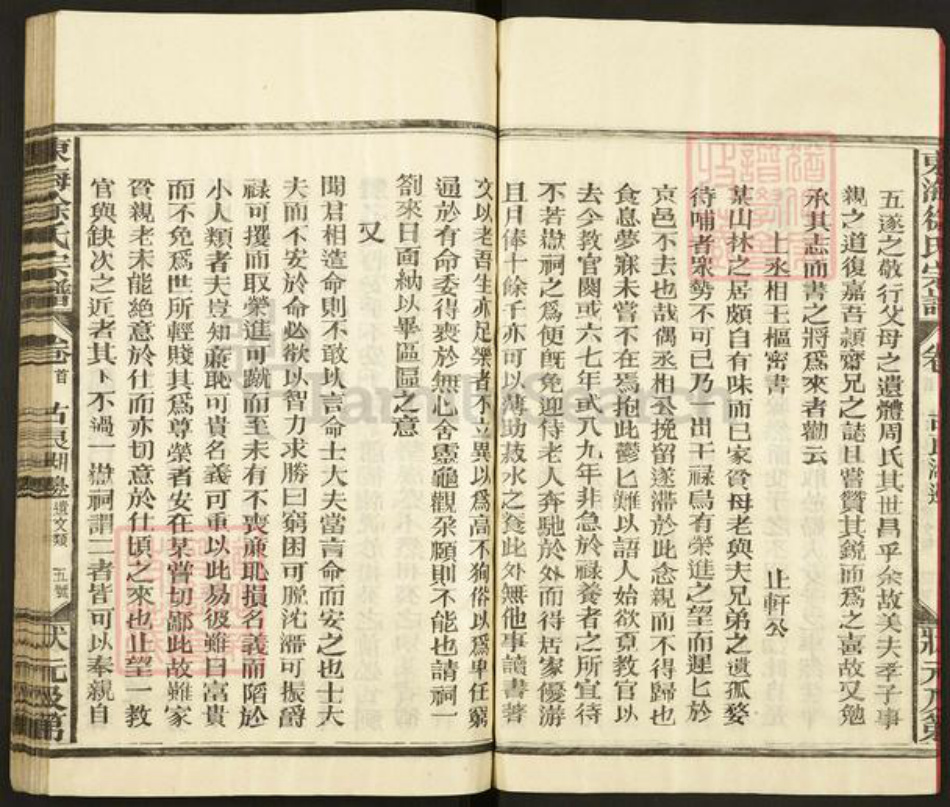 五遂之敬行父母之遺體周氏其世昌乎余故美夫季子事
親之道復嘉吾頴齋兄之誌且嘗贊其銳而爲之喜故又勉
承其志而書之將爲來者勸云
上丞相王樞密書 止軒公
某山林之居頗自有味而已家貧母老與夫兄弟之遺孤嫠
待哺者衆勢不可已乃出干禄烏有榮進之望而遲匕於
京邑不去也哉偶丞相公挽留遂滯於此念親而不得歸也
食息夢寐未嘗不在焉抱此鬱匕難以語人始欲覓教官以
去今教官闕或六七年或八九年非急於禄養者之所宜待
不若嶽祠之爲便旣免迎侍老人奔馳於外而得居家優游
且日俸十餘千亦可以薄助菽水之食此外無他事讀書著
文以老吾生亦足樂者不立異以爲高不狥俗以爲卑任窮
通於有命委得喪於無心舍靈龜觀朶頤則不能也請祠一
劄來日面納以畢區區之意
又
聞君相造命則不敢以言命士大夫當言命而安之也士大
夫而不安於命必欲以智力求勝曰窮困可脫沈滯可振爵
禄可攫而取榮進可蹴而至未有不喪亷恥損名義而陷於
小人類者夫豈知亷恥可貴名義可重以此易彼雖曰富貴
而不免爲世所輕賤其爲尊榮者安在某嘗切鄙此故雖家
貧親老未能絕意於仕而亦切意於仕頃之來也止望一教
官與缺次之近者其卜不過一嶽祠謂二者皆可以奉親自
東海徐氏宗譜 卷首 遺文類 五號 狀元及第